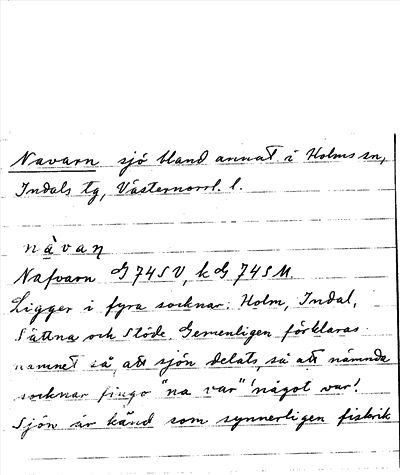 Navarn sjö bland annat i Holms sn,
Indals tg, Västernorrl. l.
nàvaņ
Nafvarn G 74 SV, k G 74 SM.
Ligger i fyra socknar: Holm, Indal,
Sättna och Stöde. Gemenligen förklaras
namnet så, att sjön delats, så att nämnda
socknar fingo "na var" 'något var'.
Sjön är känd som synnerligen fiskrik